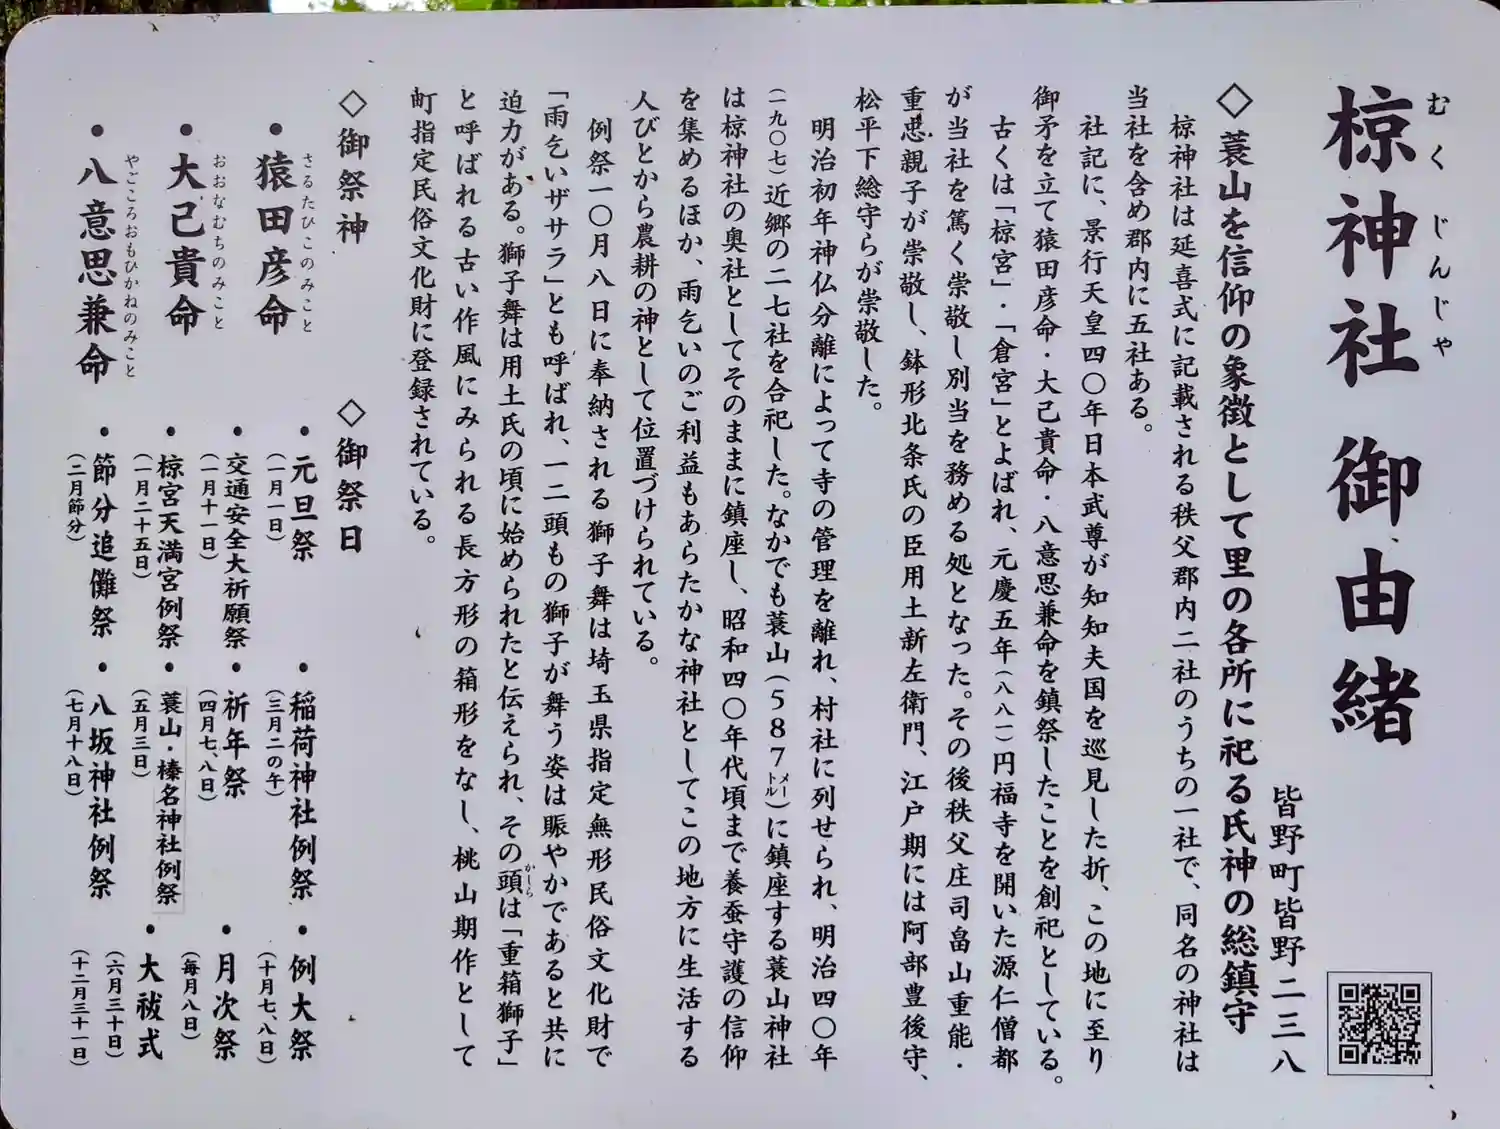 椋神社 御由緒
むくじんじゃ
皆野町皆野二三八
◇蓑山を信仰の象徴として里の各所に祀る氏神の総鎮守
椋神社は延喜式に記載される秩父郡内二社のうちの一社で、同名の神社は
当社を含め郡内に五社ある。
社記に、景行天皇四〇年日本武尊が知知夫国を巡見した折、この地に至り
御矛を立て猿田彦命・大己貴命・八意思兼命を鎮祭したことを創祀としている。
古くは「椋宮」・「倉宮」とよばれ、元慶五年(八八一)円福寺を開いた源仁僧都
が当社を篤く崇敬し別当を務める処となった。その後秩父庄司畠山重能・
重忠親子が崇敬し、鉢形北条氏の臣用土新左衛門、江戸期には阿部豊後守、
松平下総守らが崇敬した。
明治初年神仏分離によって寺の管理を離れ、村社に列せられ、明治四〇年
(一九〇七)近郷の二七社を合祀した。なかでも蓑山(587メートル)に鎮座する蓑山神社
は椋神社の奥社としてそのままに鎮座し、昭和四〇年代頃まで養蚕守護の信仰
を集めるほか、雨乞いのご利益もあらたかな神社としてこの地方に生活する
人びとから農耕の神として位置づけられている。
例祭一〇月八日に奉納される獅子舞は埼玉県指定無形民俗文化財で
「雨乞いザサラ」とも呼ばれ、一二頭もの獅子が舞う姿は賑やかであると共に
迫力がある。獅子舞は用土氏の頃に始められたと伝えられ、その頭は「重箱獅子」
かしら
と呼ばれる古い作風にみられる長方形の箱形をなし、桃山期作として
町指定民俗文化財に登録されている。
◇御祭神
・猿田彦命
さるたひこのみこと
・大己貴命
おおなむちのみこと
・八意思兼命
やごころおもひかねのみこと
◇御祭日
・元旦祭
(一月一日)
・交通安全大祈願祭
(一月十一日)
・椋宮天満宮例祭
(一月二十五日)
・節分追儺祭
(二月節分)
・稲荷神社例祭
(三月二の午)
・祈年祭
(四月七、八日)
・蓑山・榛名神社例祭
(五月三日)
・八坂神社例祭
(七月十八日)
・例大祭
(十月七、八日)
・月次祭
(毎月八日)
・大祓式
(六月三十日)
(十二月三十一日)